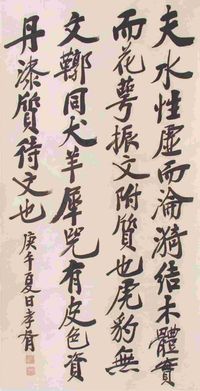 夫水性虛而淪漪結木體實
而花萼振文附質也虎豹無
文鞹同犬羊犀兕有皮色資
丹漆質待文也庚午夏日孝胥